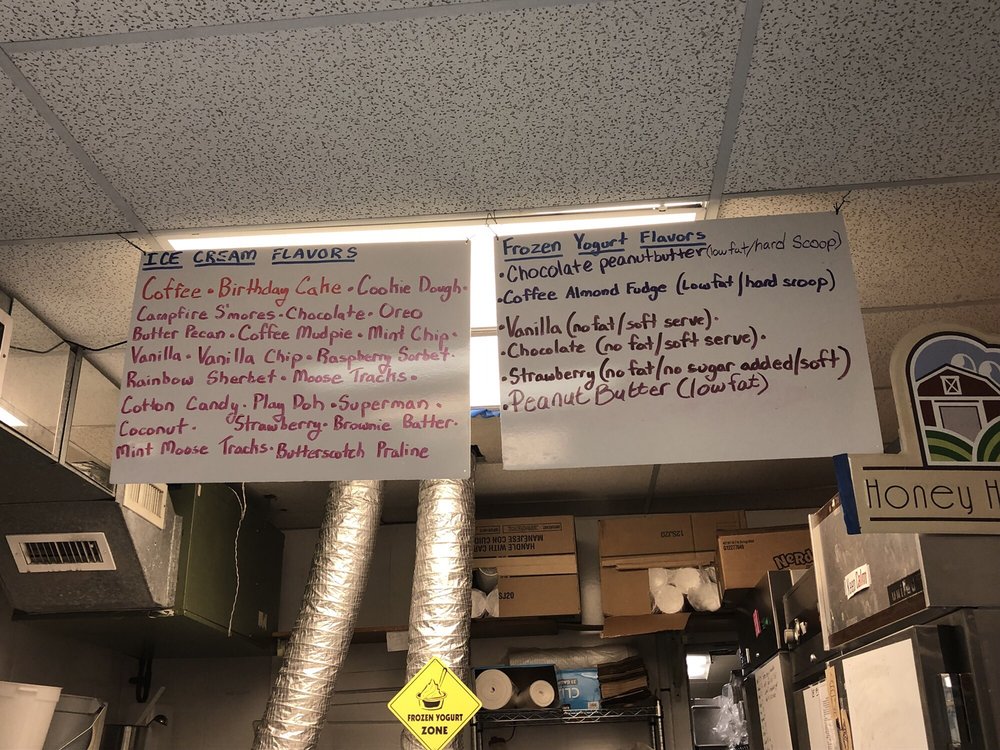 ICE CREAM FLAVORS
Coffee • Birthday Cake • Cookie Dough •
Campfire S'mores • Chocolate • Oreo
Butter Pecan • Coffee Mudpie • Mint Chip •
Vanilla • Vanilla Chip • Raspberry Sorbet •
Rainbow Sherbet • Moose Tracks •
Cotton Candy • Play Doh • Superman •
Coconut • Strawberry • Brownie Batter •
Mint Moose Tracks • Butterscotch Praline
Frozen Yogurt Flavors
• Chocolate peanutbutter (lowfat/hard Scoop)
• Coffee Almond Fudge (Lowfat/hard scoop)
• Vanilla (no fat/soft serve) •
• Chocolate (no fat/soft serve) •
• Strawberry (no fat/no sugar added/soft)
• Peanut Butter (lowfat)
Honey H
HANDLE WITH CAR
MANEJESE CON CUID
SJ20
12SJ20
Nerd
FROZEN YOGURT
ZONE